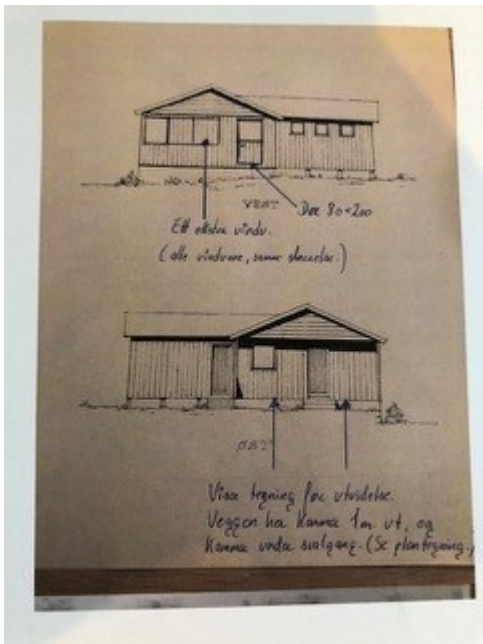 VEST
Dør 80×200
Ett ekstra vindu.
(alle vinduene, samme størrelse.)
ØST
Viser tegning før utvidelse.
Veggen her kommer 1m. ut, og
kommer under svalgang. (Se plantegning.)